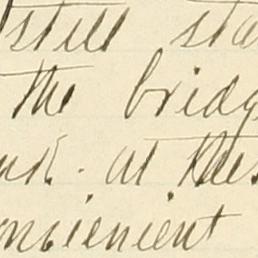 still sta
the bridg
at thes
convenient